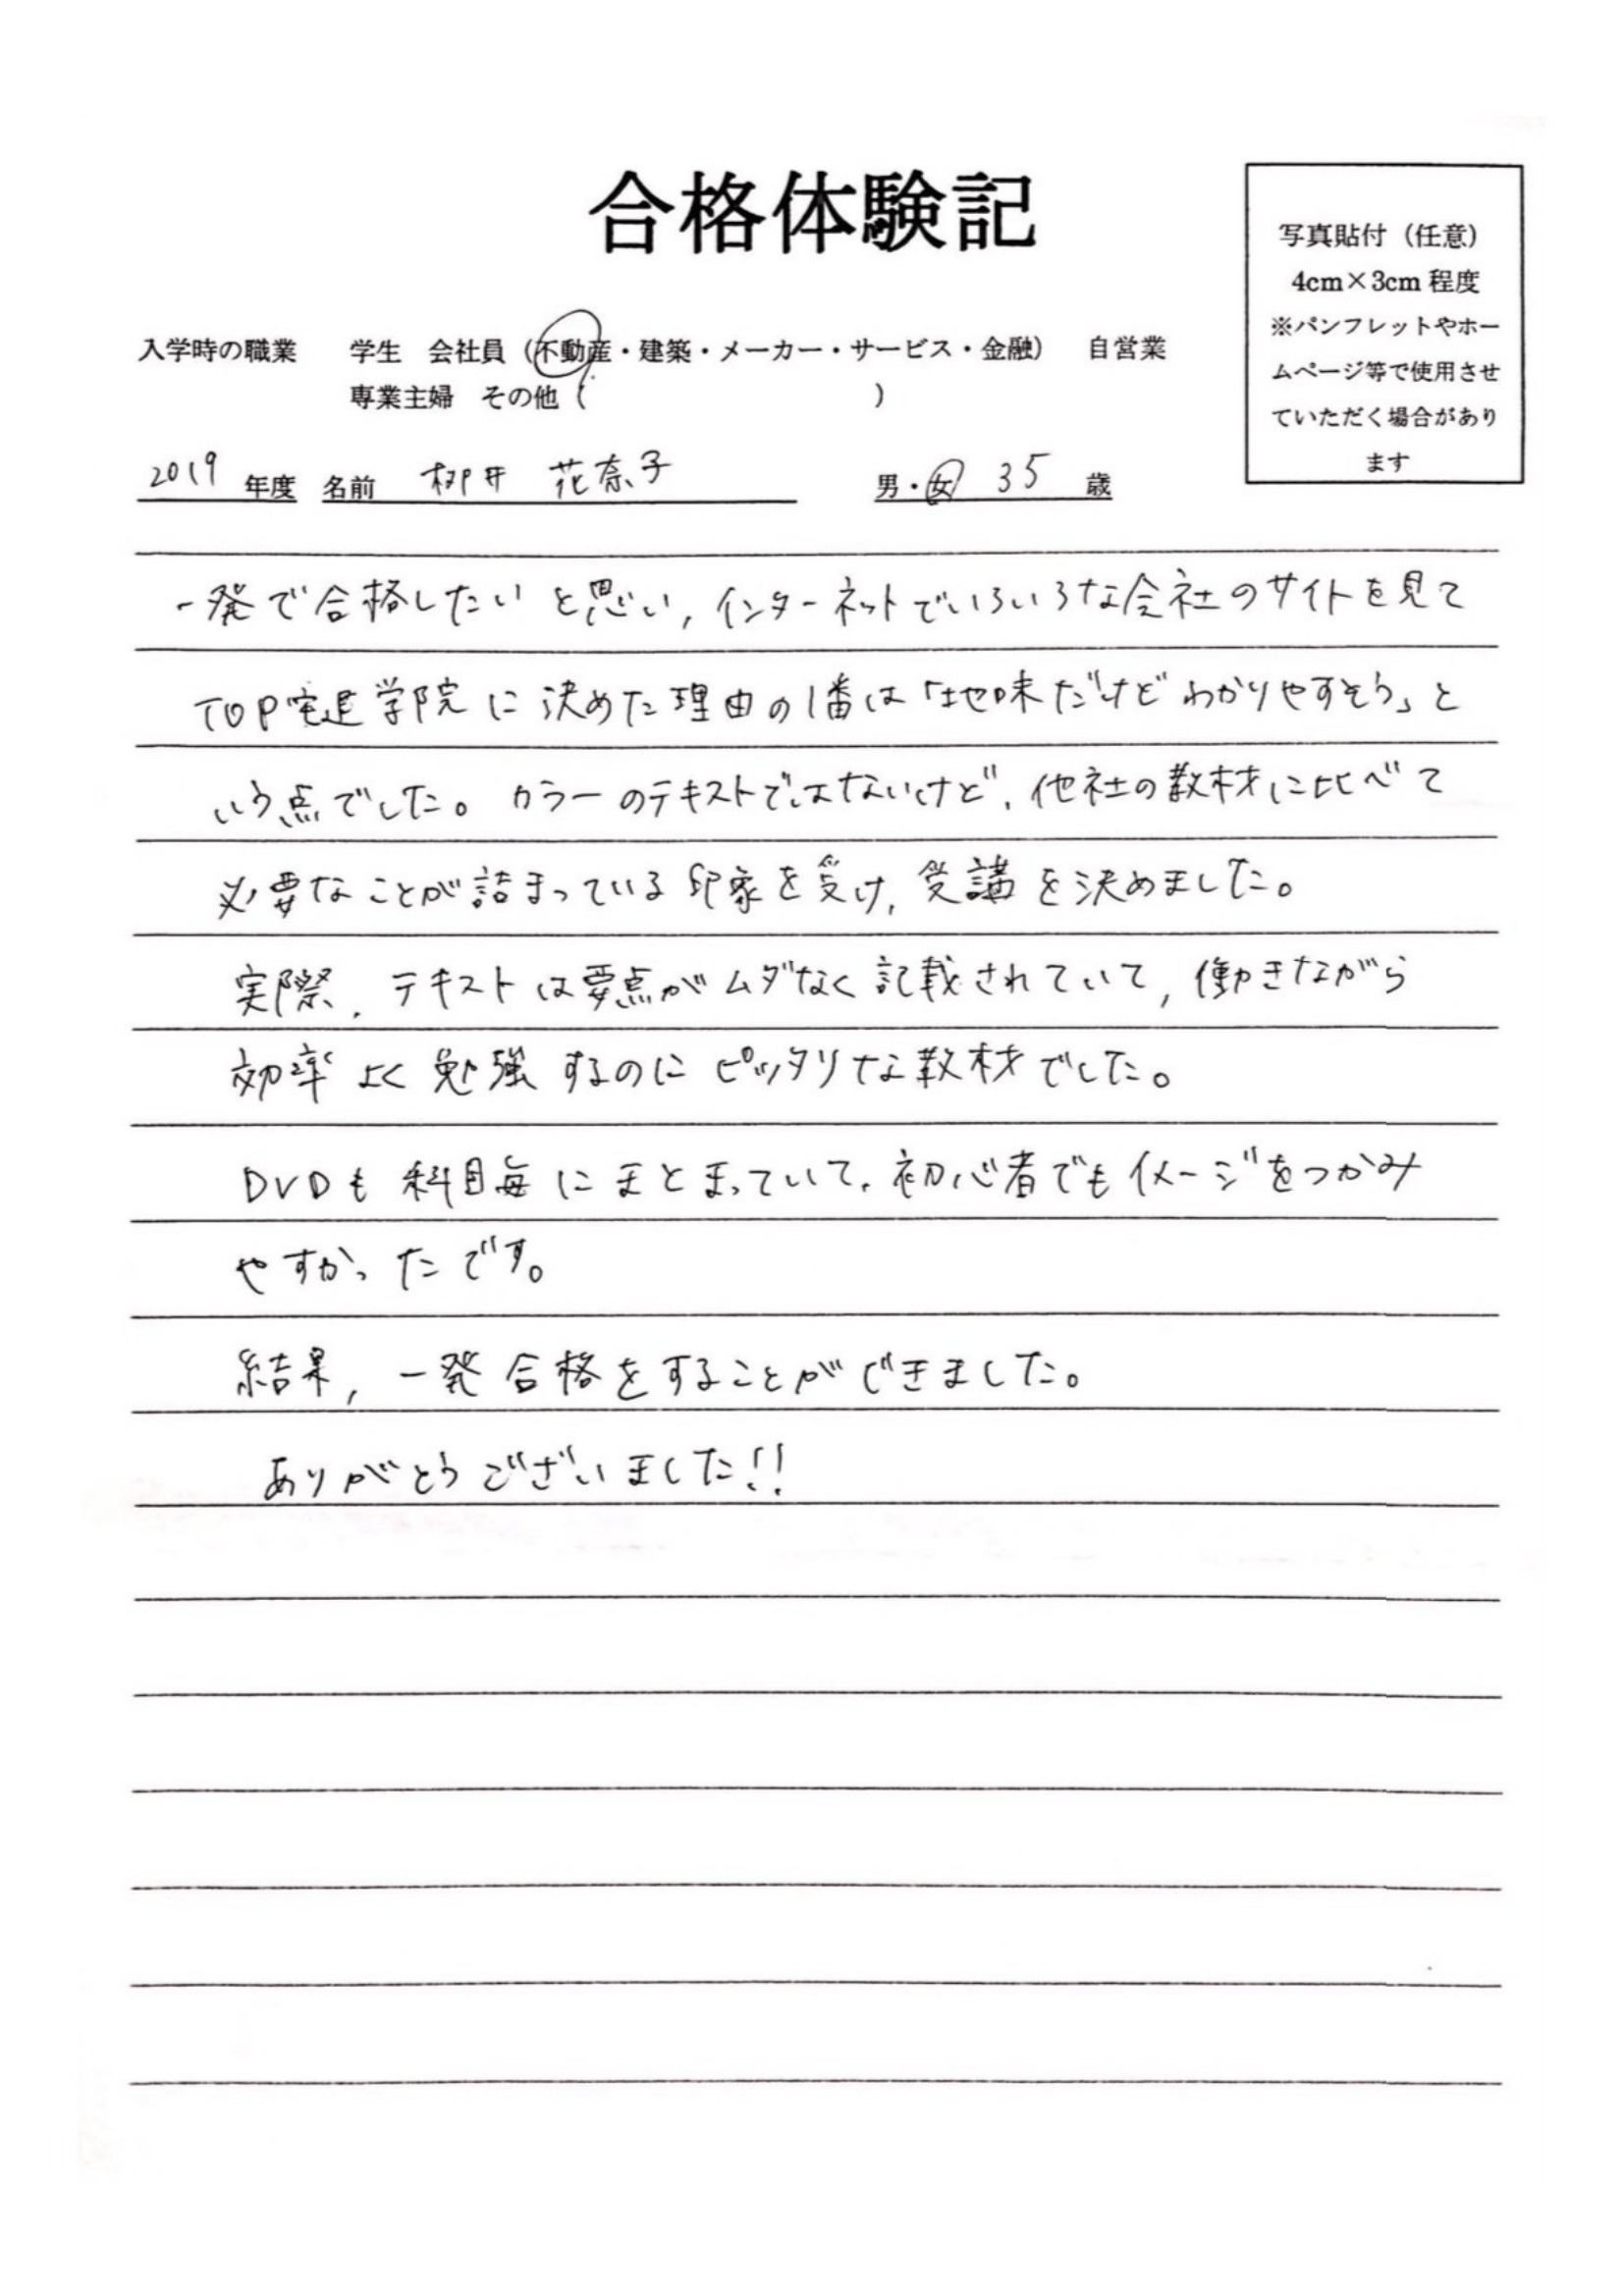 合格体験記
写真貼付（任意）
4cm×3cm 程度
※パンフレットやホー
ムページ等で使用させ
ていただく場合があり
ます
入学時の職業　学生　会社員（不動産・建築・メーカー・サービス・金融）　自営業
専業主婦　その他（　　　　　　　　　　　）
2019 年度　名前　柳井　花奈子　男・女　35　歳
一発で合格したいと思い，インターネットでいろいろな会社のサイトを見て
TOP宅建学院に決めた理由の1番は「地味だけどわかりやすそう」と
いう点でした。カラーのテキストではないけど、他社の教材に比べて
必要なことが詰まっている印象を受け，受講を決めました。
実際，テキストは要点がムダなく記載されていて，働きながら
効率よく勉強するのにピッタリな教材でした。
DVDも科目毎にまとまっていて、初心者でもイメージをつかみ
やすかったです。
結果，一発合格をすることができました。
ありがとうございました!!